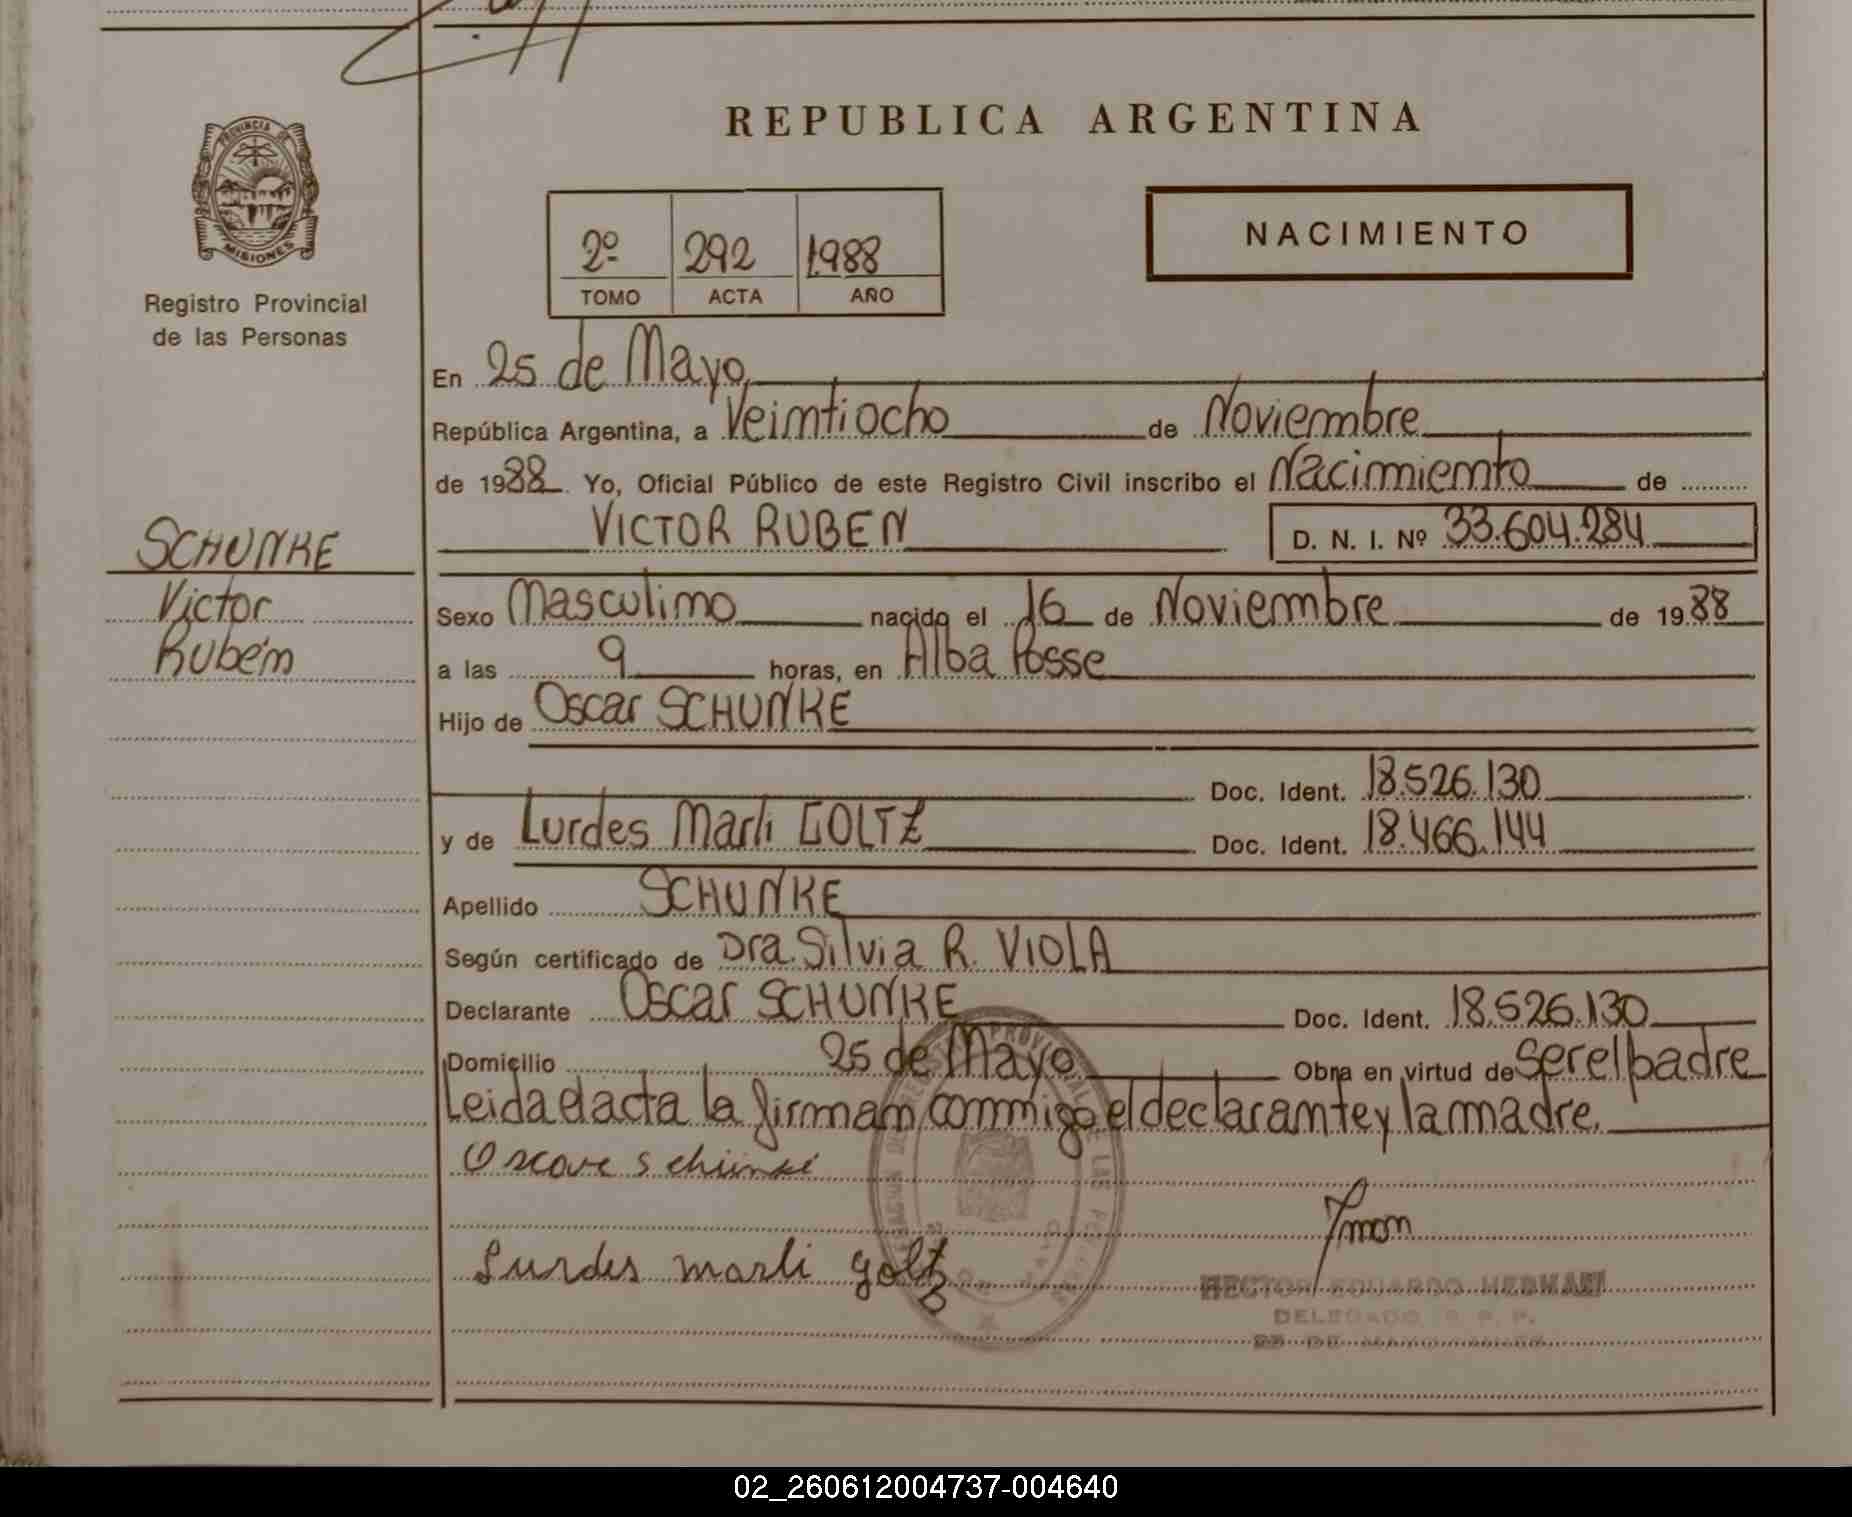 REPUBLICA ARGENTINA
PROVINCIA DE
MISIONES
Registro Provincial
de las Personas
2º 292 1988
TOMO ACTA AÑO
NACIMIENTO
En 25 de Mayo
República Argentina, a Veintiocho de Noviembre
de 1988. Yo, Oficial Público de este Registro Civil inscribo el Nacimiento de
VICTOR RUBEN D. N. I. Nº 33.604.284
SCHUNKE
Victor
Rubén
Sexo Masculino nacido el 16 de Noviembre de 1988
a las 9 horas, en Alba Posse
Hijo de Oscar SCHUNKE
Doc. Ident. 18.526.130
y de Lurdes Marli GOLTZ Doc. Ident. 18.466.144
Apellido SCHUNKE
Según certificado de Dra. Silvia R. VIOLA
Declarante Oscar SCHUNKE Doc. Ident. 18.526.130
Domicilio 25 de Mayo Obra en virtud de ser el padre
Leida el acta la firman conmigo el declarante y la madre.
Oscar Schunke
Lurdes marli goltz
HECTOR EDUARDO
DELEGADO R. P. P.
25 DE MAYO
02_260612004737-004640